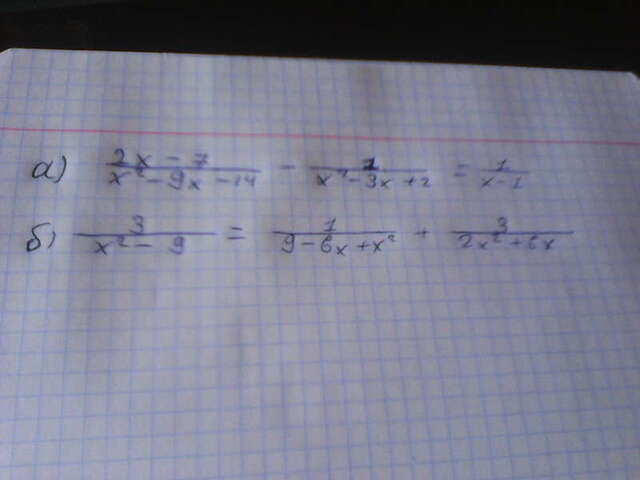 а) (2x - 7)/(x² - 9x - 14) - 1/(x² - 3x + 2) = 1/(x - 1)
б) 3/(x² - 9) = 1/(9 - 6x + x²) + 3/(2x² + 6x)